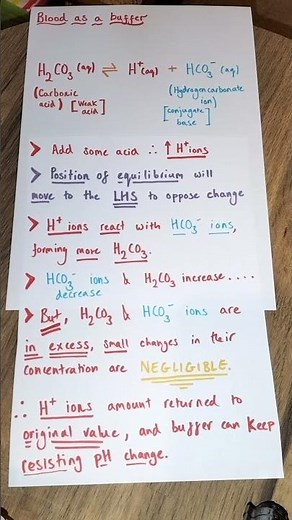 Blood as a buffer
H₂CO₃ (aq) ⇌ H⁺(aq) + HCO₃⁻ (aq)
(Carbonic acid) [weak acid] (Hydrogencarbonate ion) [conjugate base]
> Add some acid ∴ ↑ H⁺ions
> Position of equilibrium will
move to the LHS to oppose change
> H⁺ ions react with HCO₃⁻ ions,
forming more H₂CO₃.
> HCO₃⁻ ions & H₂CO₃ increase....
decrease
> But, H₂CO₃ & HCO₃⁻ ions are
in excess, small changes in their
concentration are NEGLIGIBLE.
∴ H⁺ ions amount returned to
original value, and buffer can keep
resisting pH change.